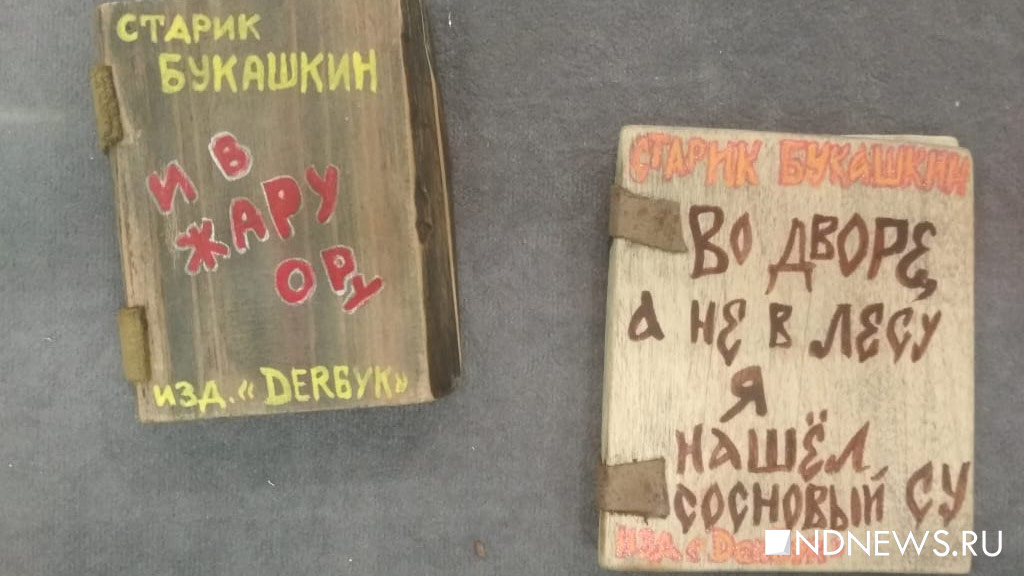 СТАРИК
БУКАШКИН
И В
ЖАРУ
ОРУ
ИЗД. «DERБУК»
СТАРИК БУКАШКИН
ВО ДВОРЕ,
а НЕ В ЛЕСУ
Я
НАШЁЛ
СОСНОВЫЙ СУ
ИЗД.
NDNEWS.RU